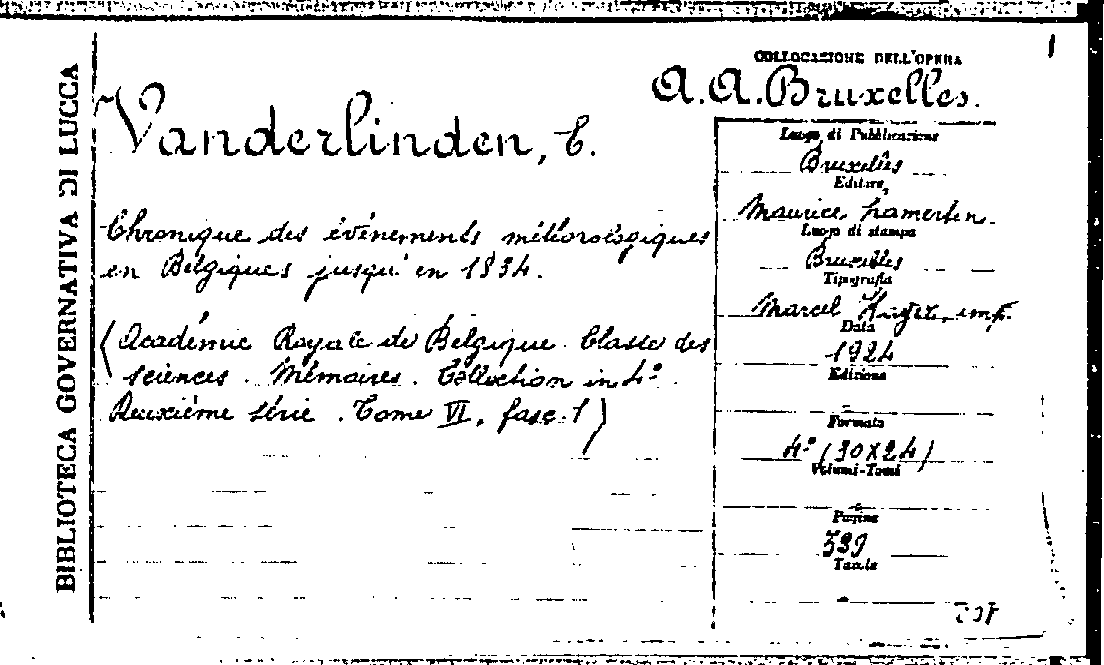 BIBLIOTECA GOVERNATIVA DI LUCCA
1
COLLOCAZIONE DELL'OPERA
A.A. Bruxelles.
Vanderlinden, E.
Chronique des événements météorologiques
en Belgiques jusqu'en 1834.
(Académie Royale de Belgique. Classe des
sciences. Mémoires. Collection in 4°.
Deuxième série. Tome VI, fasc. 1)
Luogo di Pubblicazione
Bruxelles
Editore
Maurice Lamertin.
Luogo di stampa
Bruxelles
Tipografia
Marcel imp.
Data
1924
Edizione
-
Formato
4° (30x24)
Volumi-Tomi
-
Pagine
329
Tavole
-